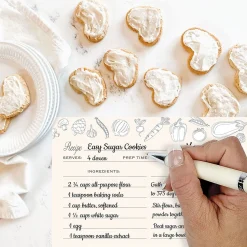 Recipe Easy Sugar Cookies
SERVES: 4 dozen PREP TIME
INGREDIENTS:
2 ¾ cups all-purpose flour
1 teaspoon baking soda
1 cup butter, softened
1 ½ cups white sugar
1 egg
1 teaspoon vanilla extract
to 375 d
Stir flour,
powder toget
Beat sugar an
in a large bow